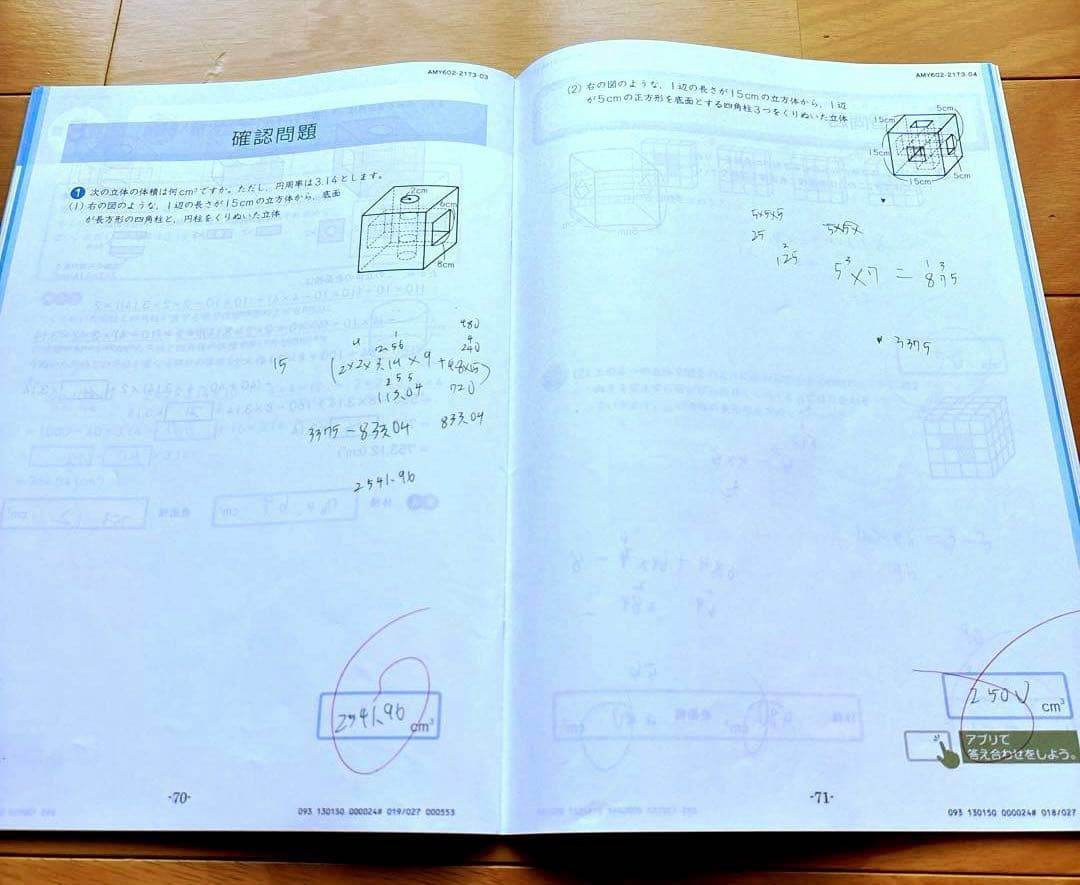 AMY602-21T3-03
確認問題
1 次の立体の体積は何cm³ですか。ただし，円周率は3.14とします。
(1) 右の図のような，1辺の長さが15cmの立方体から，底面
が長方形の四角柱と，円柱をくりぬいた立体
2cm
6cm
8cm
480
240
12.56
15
(2×2×3.14×9+
113.04
720
3375-833.04
833.04
2541.96
2541.96
cm³
-70-
093 130150 000024# 019/027 000553
AMY602-21T3-04
(2) 右の図のような，1辺の長さが15cmの立方体から，1辺
が5cmの正方形を底面とする四角柱3つをくりぬいた立体
5cm
15cm
15cm
15cm
5cm
5×5×5
5×5×
25
125
5³×7=875
3375
2500
cm³
アプリで
答え合わせをしよう。
-71-
093 130150 000024# 018/027